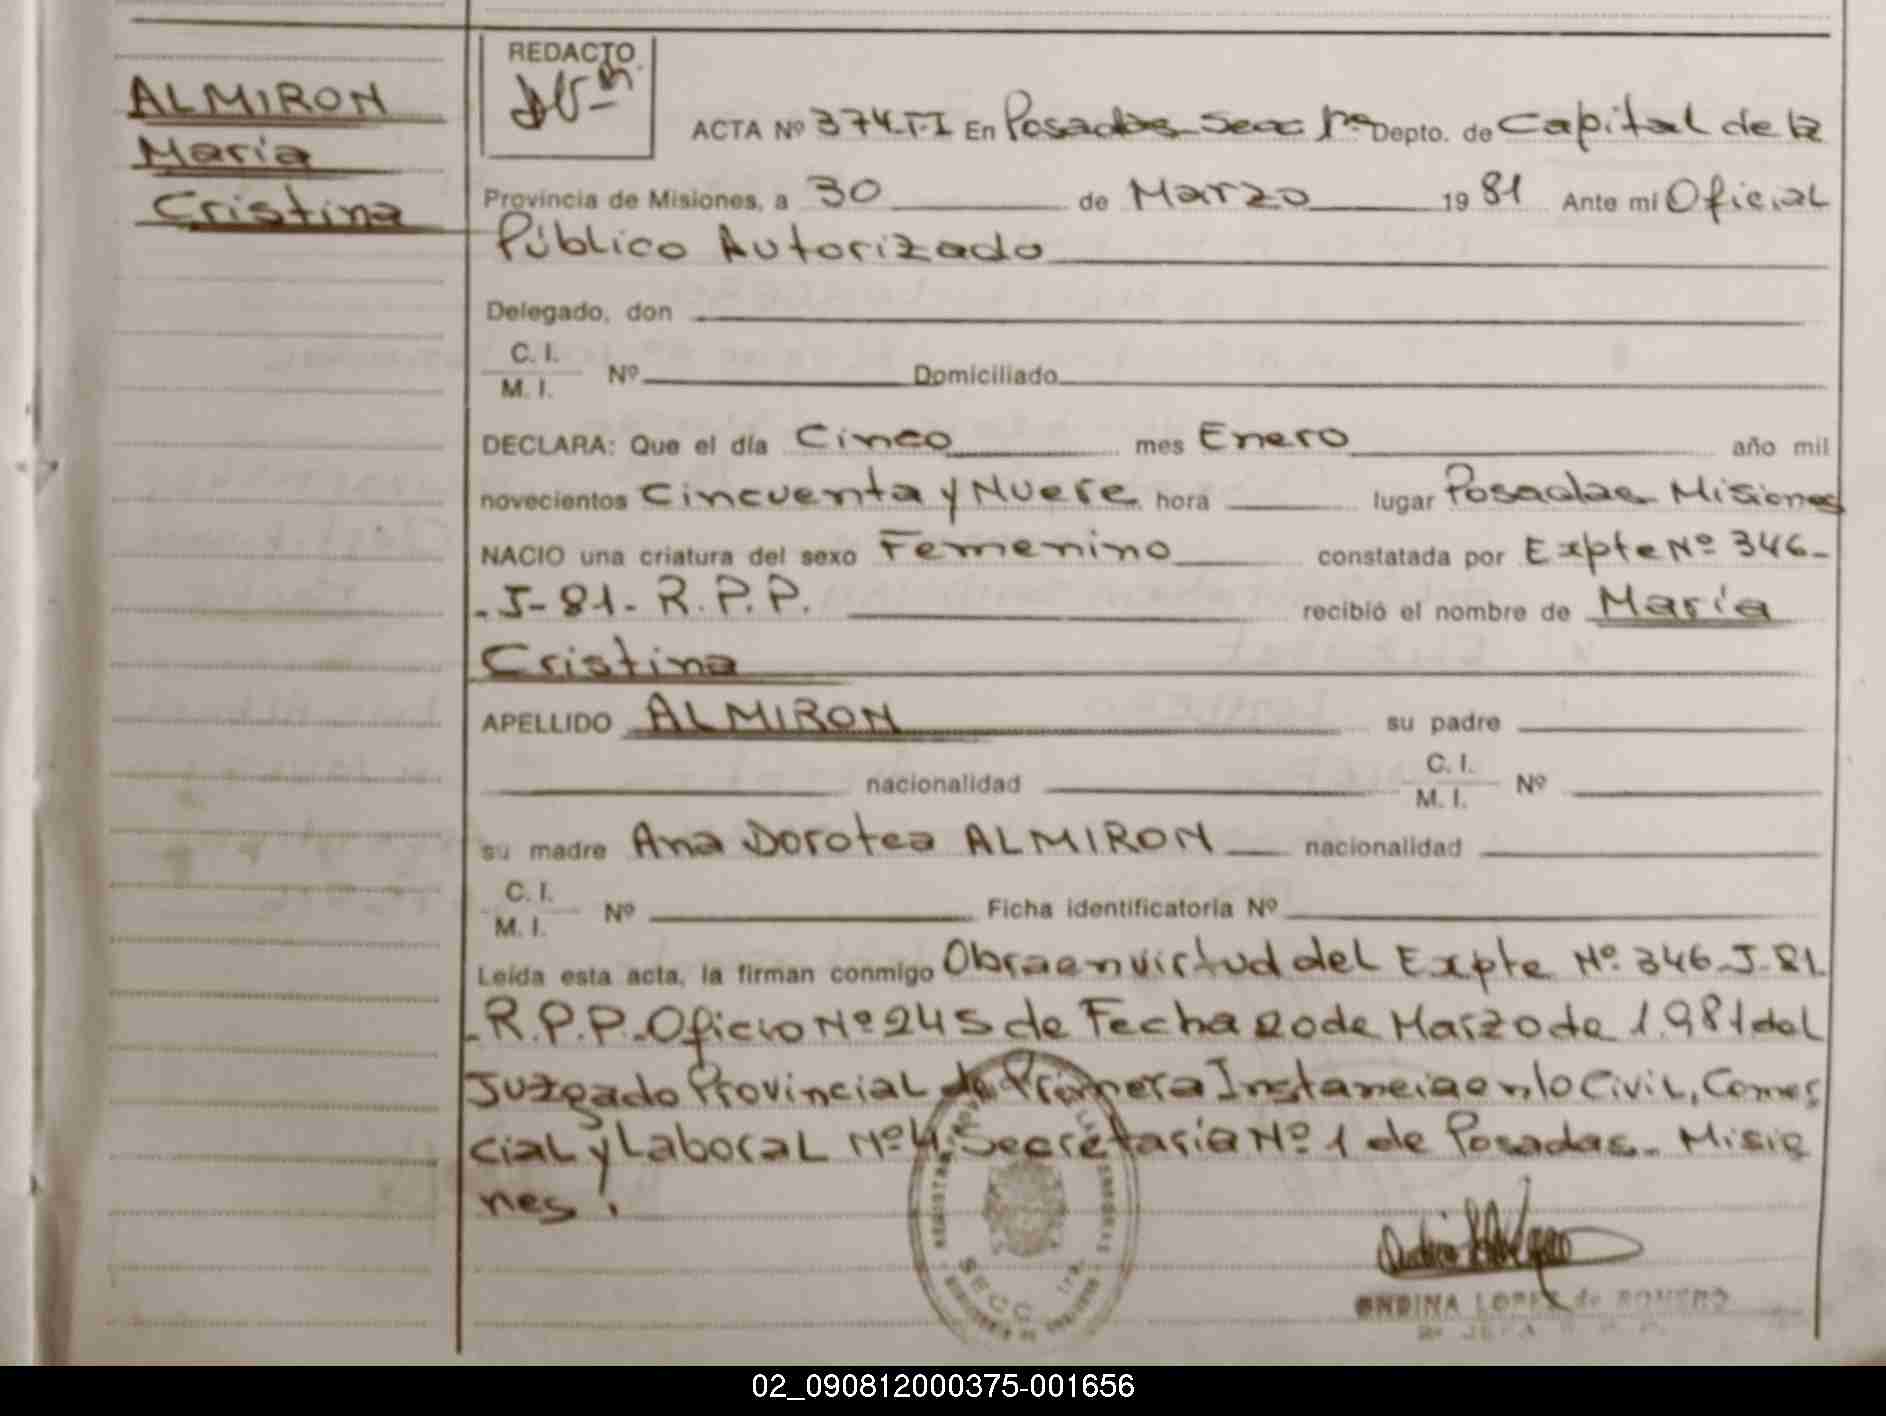 ALMIRON
María
Cristina
REDACTO
ACTA Nº 374.T.I En Posadas Secc 1ª Depto. de Capital de la
Provincia de Misiones, a 30 de Marzo 1981 Ante mi Oficial
Público Autorizado
Delegado, don
C. I.
M. I. Nº Domiciliado
DECLARA: Que el día Cinco mes Enero año mil
novecientos Cincuenta y Nueve hora lugar Posadas Misiones
NACIO una criatura del sexo Femenino constatada por Expte Nº 346-
-J-81- R.P.P. recibió el nombre de María
Cristina
APELLIDO ALMIRON su padre
nacionalidad C. I.
M. I. Nº
su madre Ana Dorotea ALMIRON nacionalidad
C. I.
M. I. Nº Ficha identificatoria Nº
Leída esta acta, la firman conmigo Obra en virtud del Expte Nº 346-J-81
-R.P.P. Oficio Nº 245 de Fecha 20 de Marzo de 1.981 del
Juzgado Provincial de Primera Instancia en lo Civil, Comer
cial y Laboral Nº 4, Secretaría Nº 1 de Posadas- Misio
nes.
SECC. 1ra.
ONDINA LOPEZ de ROMERO
02_090812000375-001656